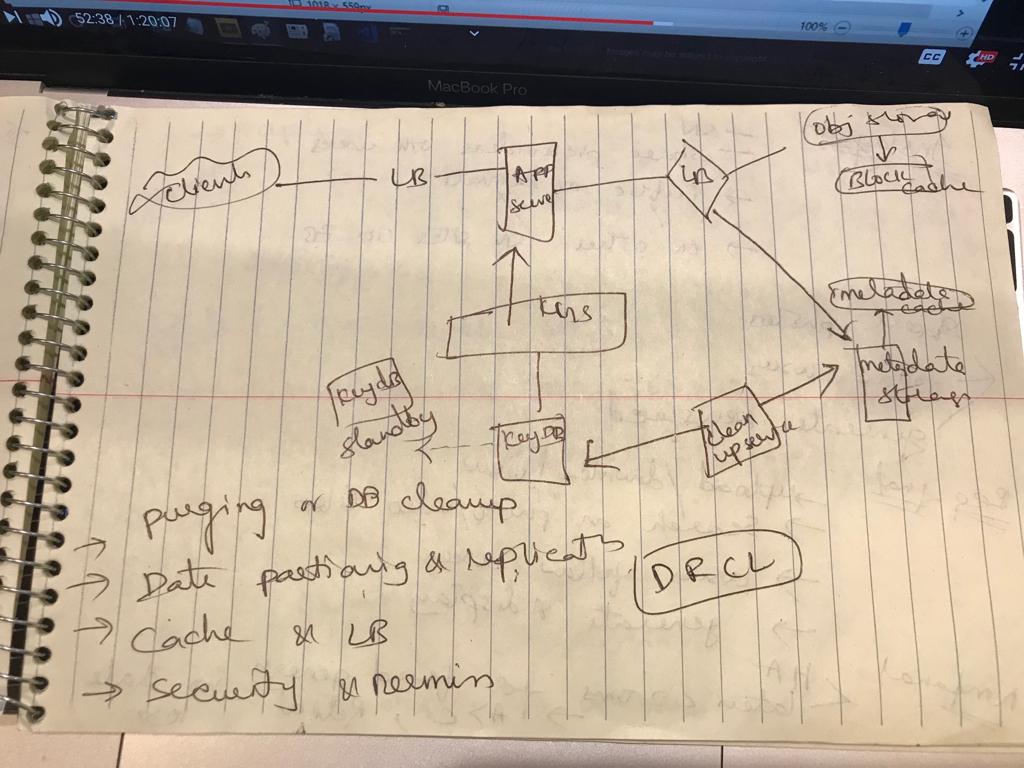 52:38 / 1:20:07
1018 × 559px
100%
CC
HD
MacBook Pro
Clients
LB
APP
LB
Obj storage
BLOCK
cache
KGS
metadata
cache
metadata
storage
KeyDB
standby
KeyDB
clean
purging or DB cleanup
→ Data & replicat
→ Cache & LB
→ Security &
DRCL